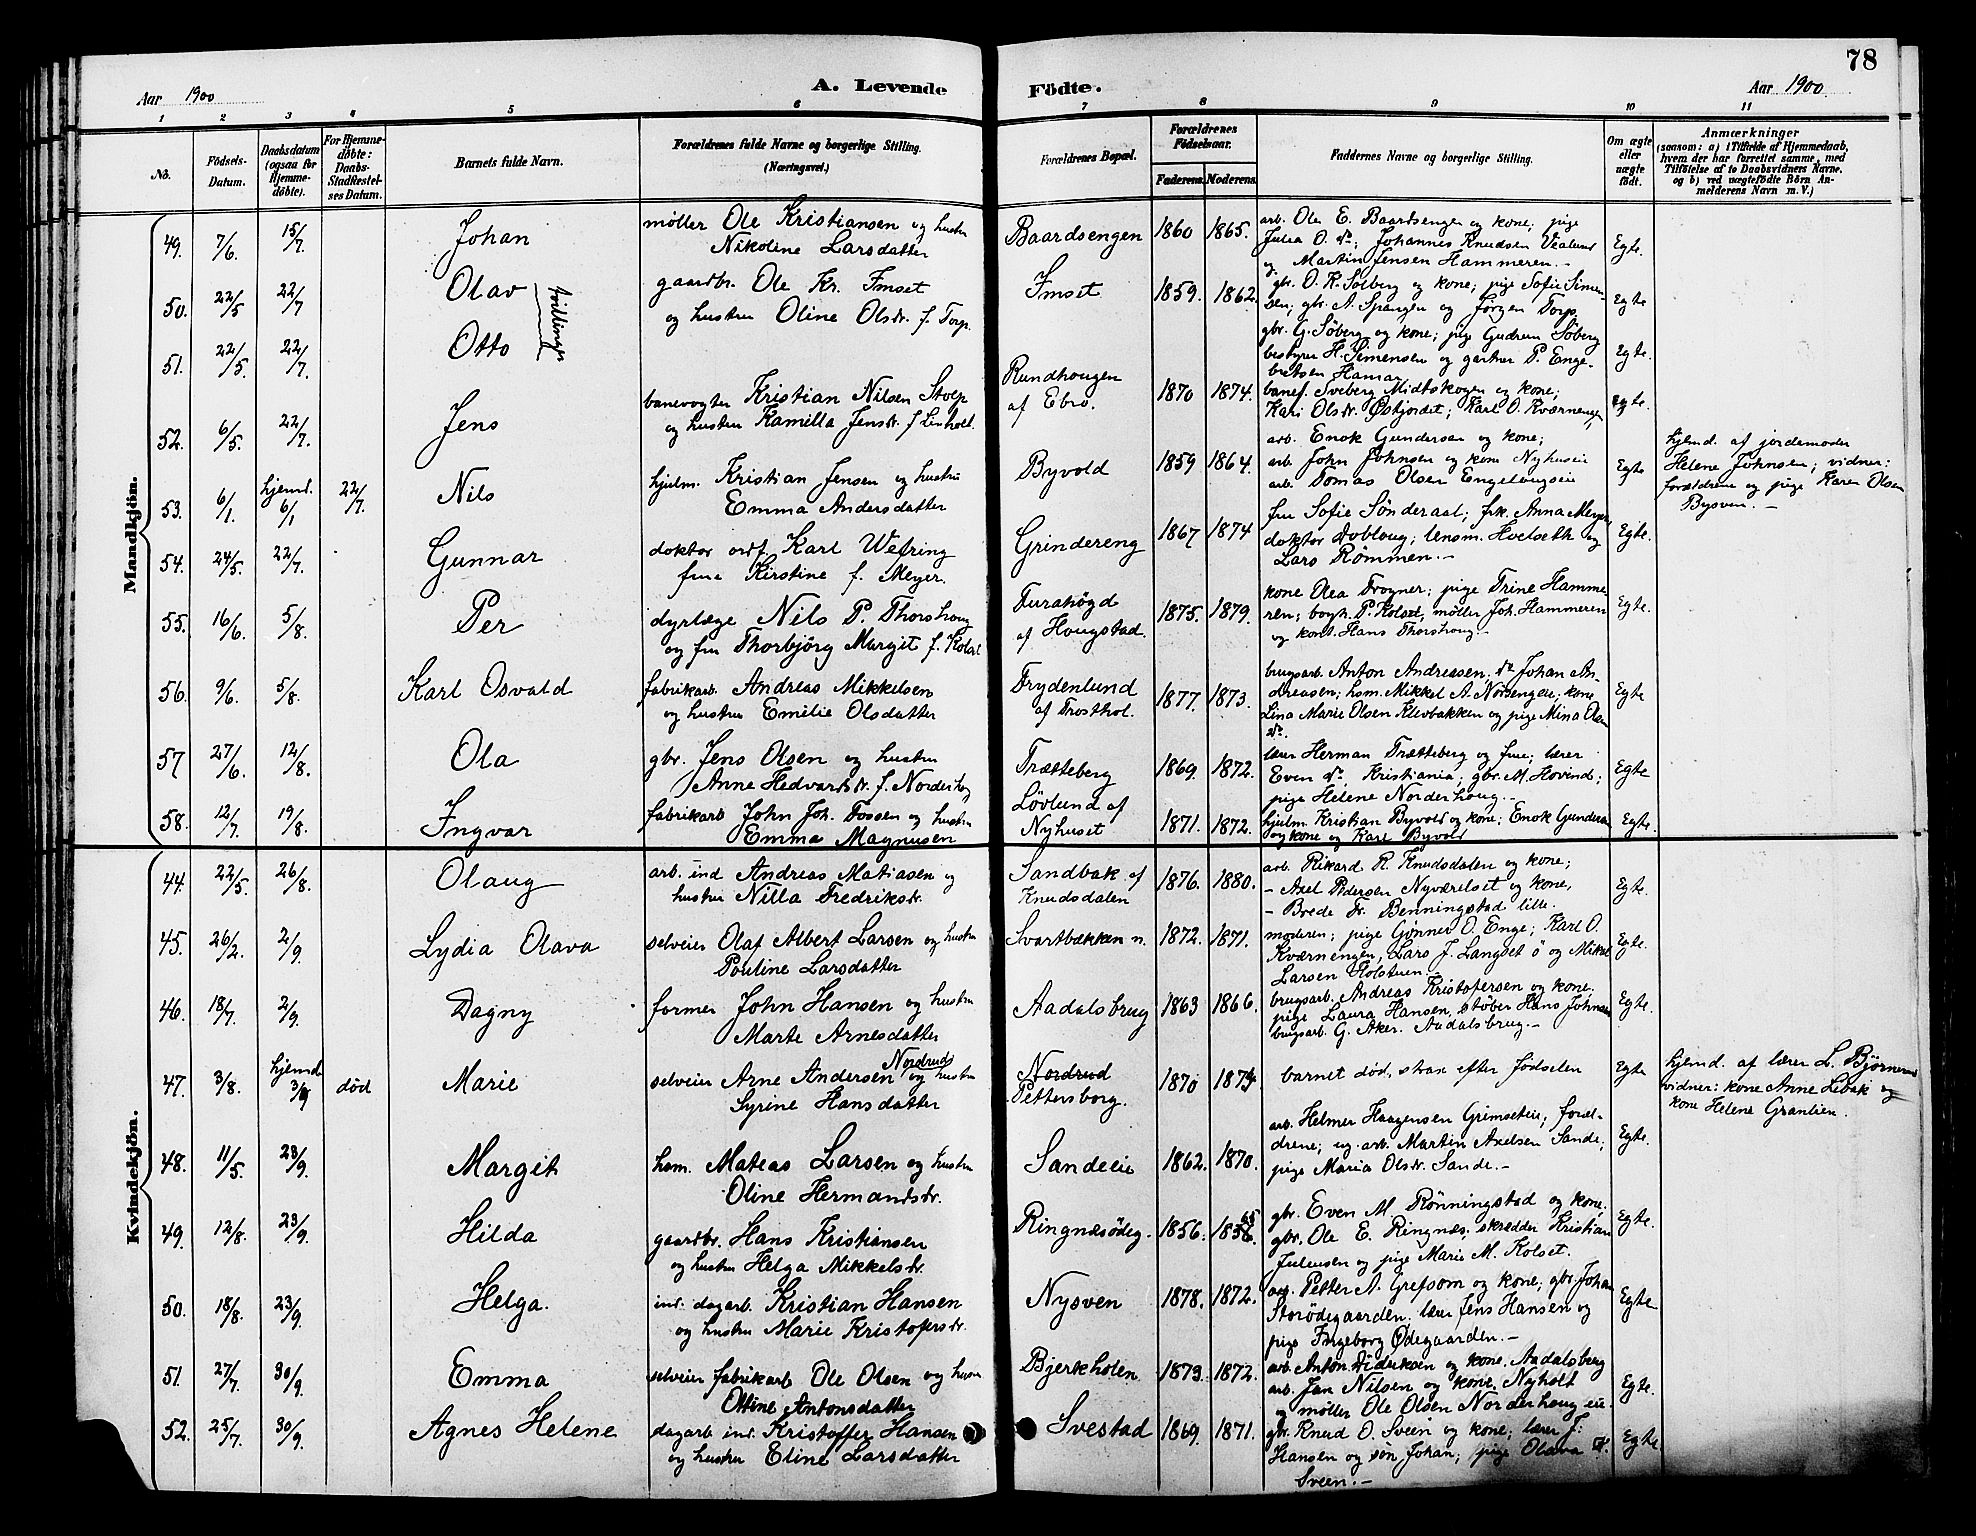 78
Aar 1900
A. Levende Födte.
Aar 1900.
1 2 3 4 5 6 7 8 9 10 11
No.
Födsels-Datum.
Daabsdatum (ogsaa for Hjemmedöbte).
For Hjemmedöbte: Daabs-Stadfæstelses Datum.
Barnets fulde Navn.
Forældrenes fulde Navne og borgerlige Stilling.
(Næringsvei.)
Forældrenes Bopæl.
Forældrenes Födselsaar.
Faderens. Moderens.
Faddernes Navne og borgerlige Stilling.
Om ægte eller uægte födt.
Anmærkninger
(saasom: a) i Tilfælde af Hjemmedaab,
hvem der har forrettet samme, med
Tilföielse af to Daabsvidners Navne,
og b) ved uægtefödte Börn An-
melderens Navn m. V.)
Mandkjön.
49. 7/6. 15/7. Johan
möller Ole Kristiansen og hustru
Nikoline Larsdatter
Baardsengen 1860 1865.
arb. Ole E. Baardsengen og kone; pige
Julia O. do; Johannes Knudsen
og Martin Jensen Hammeren.-
Egte.
50. 22/5 22/7 Olav
Tvillinger
gaardbr. Ole Kr. Imset
og hustru Oline Olsdr. f. Torp.
Imset 1859. 1862.
gbr. O. K. Solberg og kone; pige Sofie Simen-
sen; gbr. A. Spangen og Jörgen Torp.
Egte
51. 22/5. 22/7. Otto
gbr. G. Söberg og kone; pige Gudrun Söberg
bestyrer H. Simensen og gartner P. Enge-
bretsen Hamar
Egte.
52. 6/5. 22/7. Jens
banevogter Kristian Nilsen Stolp
og hustru Kamilla Jensdr. f
Rundhougen
af Ebro. 1870 1874.
banef. Sveberg Midtskogen og kone;
Kari Olsdr. Östjordet; Karl O. Kværnengen
Egte.
53. 6/1. hjemd. 6/1 22/7. Nils
hjulm. Kristian Jensen og hustru
Emma Andersdatter
Byvold 1859 1864.
arb. Enok Gundersen og kone;
arb. John Johnsen og kone Nyhuseie
arb. Tomas Olsen Engelaugseie
Egte
hjemd. af jordemoder
Helene Johnsen; vidner:
forældrene og pige Karen Olsen
Bysven.-
54. 24/5. 22/7. Gunnar
doktor ordf. Karl Wefring
frue Kirstine f. Meyer.
Grindereng 1867 1874
fru Sofie Sönderaal; frk. Anna Meyer
doktor Dobloug; lensm. Hoelseth og
Lars Römmen.-
Egte.
55. 16/6. 5/8. Per
dyrlæge Nils P. Thorshoug
og fru Thorbjörg Margit f. Kolset
Furuhögd
af Hougstad. 1875. 1879.
kone Olea Frogner; pige Trine Hamme-
ren; P. Kolset, möller Joh. Hammeren
og kont. Hans Thorshoug.-
Egte.
56. 9/6. 5/8. Karl Osvald
fabrikarb. Andreas Mikkelsen
og hustru Emilie Olsdatter
Frydenlund
af Frosthol. 1877. 1873.
brugsarb. Anton Andreasen, do Johan An-
dreasen; hsm. Mikkel A. Norsengeie, kone
Lina Marie Olsen Klevbakken og pige Mina Olsen
do.
Egte
57 27/6. 12/8. Ola
gbr. Jens Olsen og hustru
Anne Hedvardsdr. f. Norderhoug
Trætteberg 1869. 1872.
lærer Herman Trætteberg og frue; lærer
Even do Kristiania; gbr. M. Hovind;
pige Helene Norderhoug.-
Egte
58. 12/7. 19/8. Ingvar
fabrikarb John Joh. Fossen og hustru
Emma Magnusen
Lövlund af
Nyhuset 1871. 1872.
hjulm. Kristian Byvold og kone; Enok Gundersen
og kone og Karl Byvold
Egte.
Kvindekjön.
44. 22/5. 26/8. Olaug
arb. ind Andreas Matiasen og
hustru Nilla Fredriksdr.
Sandbak af
Knudsdalen 1876. 1880.
arb. Rikard R. Knudsdalen og kone;
- Axel Pedersen Nyværelset og kone,
- Brede Fr. Benningstad lille.
Egte.
45. 26/2. 2/9. Lydia Olava
selveier Olaf Albert Larsen og hustru
Pouline Larsdatter
Svartbækken n. 1872. 1871.
moderen; pige Gönner O. Enge; Karl O.
Kværnengen, Lars J. Langset ö og Mikal
Larsen Kolstuen.-
Egte.
46. 18/7. 2/9. Dagny
former John Hansen og hustru
Marte Arnesdatter
Aadalsbrug 1863 1866.
brugsarb. Andreas Kristofersen og kone.
pige Laura Hansen, støber Hans Johnsen
brugsarb. G. Aker. Aadalsbrug.-
Egte.
47. 3/8. hjemd. 3/8 død Marie
selveier Arne Andersen Nordrud og hustru
Syrine Hansdatter
Nordrud
Pettersborg. 1870 1874.
barnet död, strax efter födselen
Egte
hjemd. af lærer L. Björnerud
vidner: kone Anne Libak og
kone Helene Granlien.
48. 11/5. 23/9. Margit
hsm. Mateas Larsen og hustru
Oline Hermandsdr.
Sandeeie 1862. 1870.
arb. Helmer Haagensen Grimseteie; foræl-
drene; ug. arb. Martin Axelsen Sande;
pige Maria Olsdr. Sande.-
Egte.
49. 12/8. 23/9. Hilda
gaardbr. Hans Kristiansen
og hustru Helga Mikkelsdr.
Ringnæsödeg. 1856.
gbr. Even M. Rönningstad og kone,
gbr. Ole E. Ringnæs; skrædder Kristian
Juliusen og pige Marie M. Kolset.
Egte.
50. 18/8. 23/9. Helga.
ind. dagarb. Kristian Hansen
og hustru Marie Kristofersdr.
Nysven 1878. 1872.
arb. Petter A. Grefsom og kone; gbr. Johan
Storödegaarden; lærer Jens Hansen og
pige Ingeborg Ødegaarden.-
Egte
51. 27/7. 30/9. Emma
selveier fabrikarb Ole Olsen og hustru
Ottine Antonsdatter
Bjerkholen 1873. 1872.
arb. Anton Didriksen og kone. Aadalsberg
arb. Jan Nilsen og kone, Nyholt
og möller Ole Olsen Norderhoug eie.
Egte.
52. 25/7. 30/9. Agnes Helene
dagarb ind. Kristoffer Hansen
og hustru Eline Larsdatter
Svestad 1869. 1871.
gbr. Knud O. Sveen og kone; lærer J.
Hansen og sön Johan; pige Olava
Sveen.-
Egte